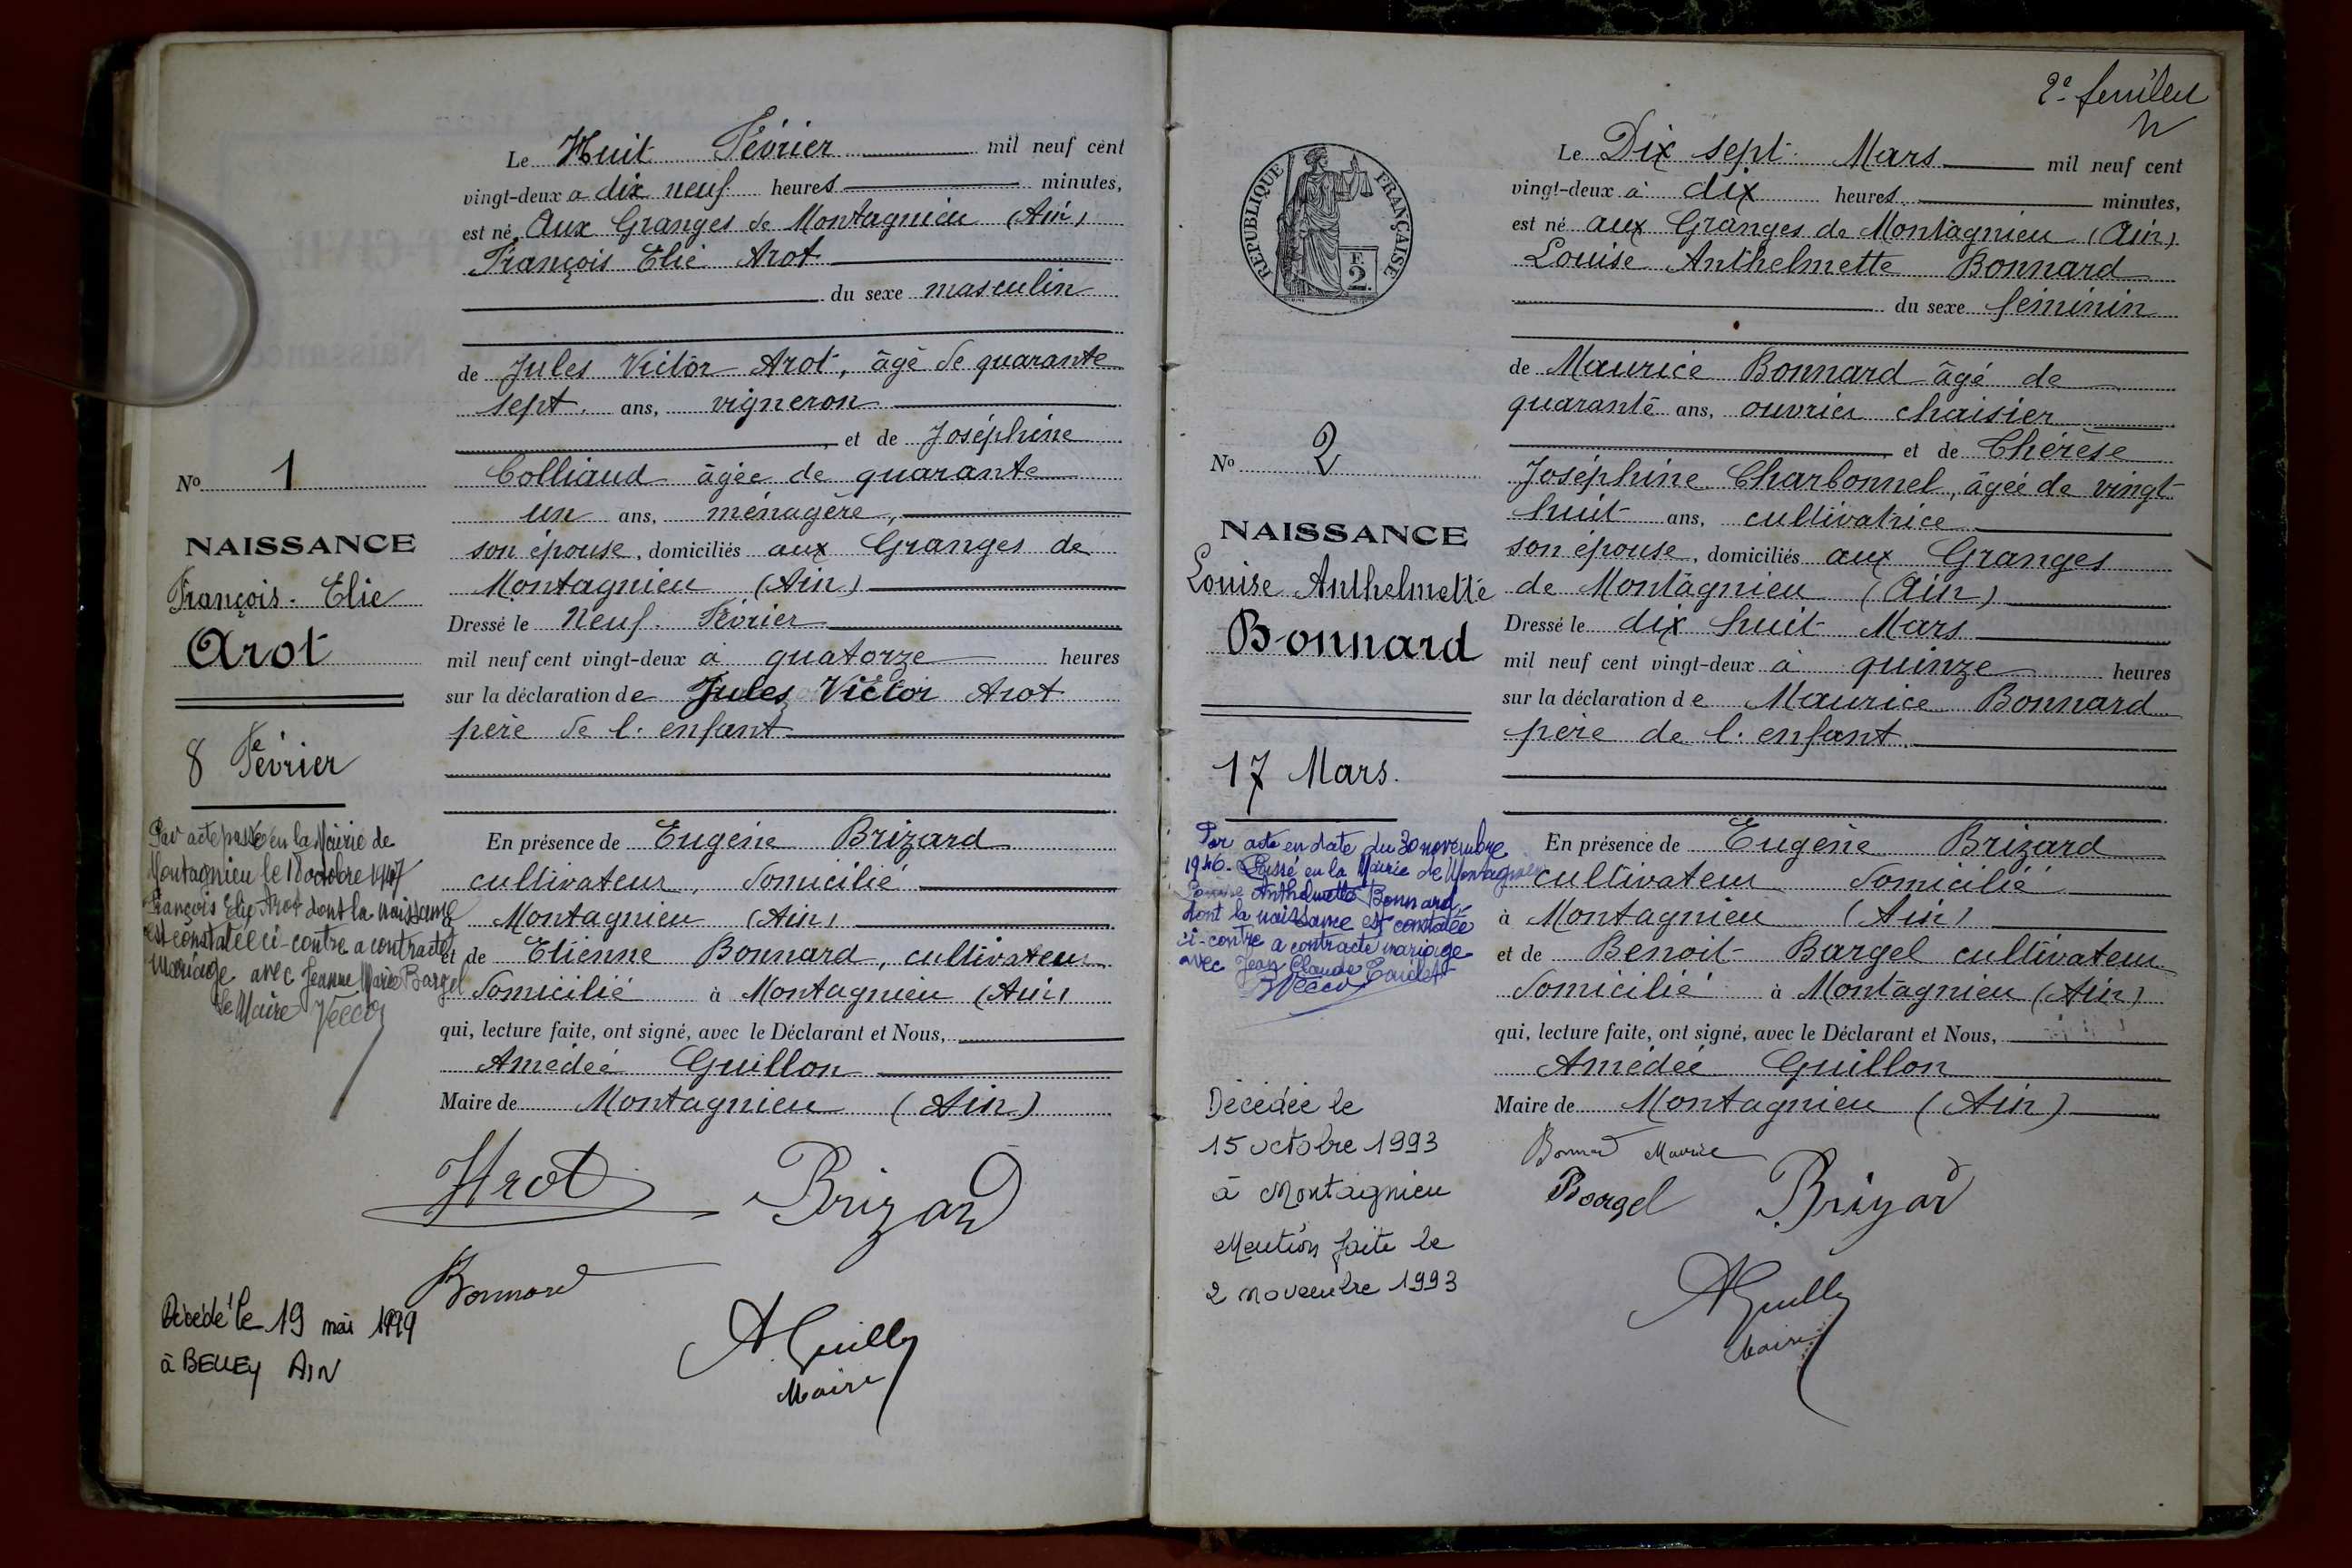 Le Huit Février mil neuf cent
vingt-deux à dix neuf heures minutes,
est né, Aux Granges de Montagnieu (Ain)
François Elie Arot
du sexe masculin
de Jules Victor Arot, âgé de quarante
sept ans, vigneron
et de Joséphine
Colliaud âgée de quarante
un ans, ménagère,
son épouse, domiciliés aux Granges de
Montagnieu (Ain)
Dressé le Neuf Février
mil neuf cent vingt-deux à quatorze heures
sur la déclaration de Jules Victor Arot
père de l'enfant
En présence de Eugène Brizard
cultivateur, domicilié
à Montagnieu (Ain)
et de Etienne Bonnard, cultivateur
domicilié à Montagnieu (Ain)
qui, lecture faite, ont signé, avec le Déclarant et Nous,
Amédée Guillon
Maire de Montagnieu (Ain)
Arot Brizard
Bonnard
A Guillon
Maire
No 1
NAISSANCE
François-Elie
Arot
8 Février
Par acte passé en la Mairie de
Montagnieu le 18 octobre 1947
François Elie Arot dont la naissance
est constatée ci-contre a contracté
mariage avec Jeanne Marie Bargel
le Maire
Décédé le 19 mai 1999
à BELLEY AIN
2e feuillet
RÉPUBLIQUE FRANÇAISE
F.
2.
Le Dix sept Mars mil neuf cent
vingt-deux à dix heures minutes,
est né aux Granges de Montagnieu (Ain)
Louise Anthelmette Bonnard
du sexe féminin
de Maurice Bonnard âgé de
quarante ans, ouvrier chaisier
et de Thérèse
Joséphine Charbonnel, âgée de vingt
huit ans, cultivatrice
son épouse, domiciliés aux Granges
de Montagnieu (Ain)
Dressé le dix huit Mars
mil neuf cent vingt-deux à quinze heures
sur la déclaration de Maurice Bonnard
père de l'enfant.
En présence de Eugène Brizard
cultivateur domicilié
à Montagnieu (Ain)
et de Benoit Bargel cultivateur
domicilié à Montagnieu (Ain)
qui, lecture faite, ont signé, avec le Déclarant et Nous,
Amédée Guillon
Maire de Montagnieu (Ain)
Bonnard Maurice
Bargel Brizard
A Guillon
Maire
No 2
NAISSANCE
Louise Anthelmette
Bonnard
17 Mars.
Par acte en date du 30 novembre
1946. Passé en la Mairie de Montagnieu
Louise Anthelmette Bonnard,
dont la naissance est constatée
ci-contre a contracté mariage
avec Jean Claude
Décédée le
15 octobre 1993
à Montagnieu
Mention faite le
2 novembre 1993